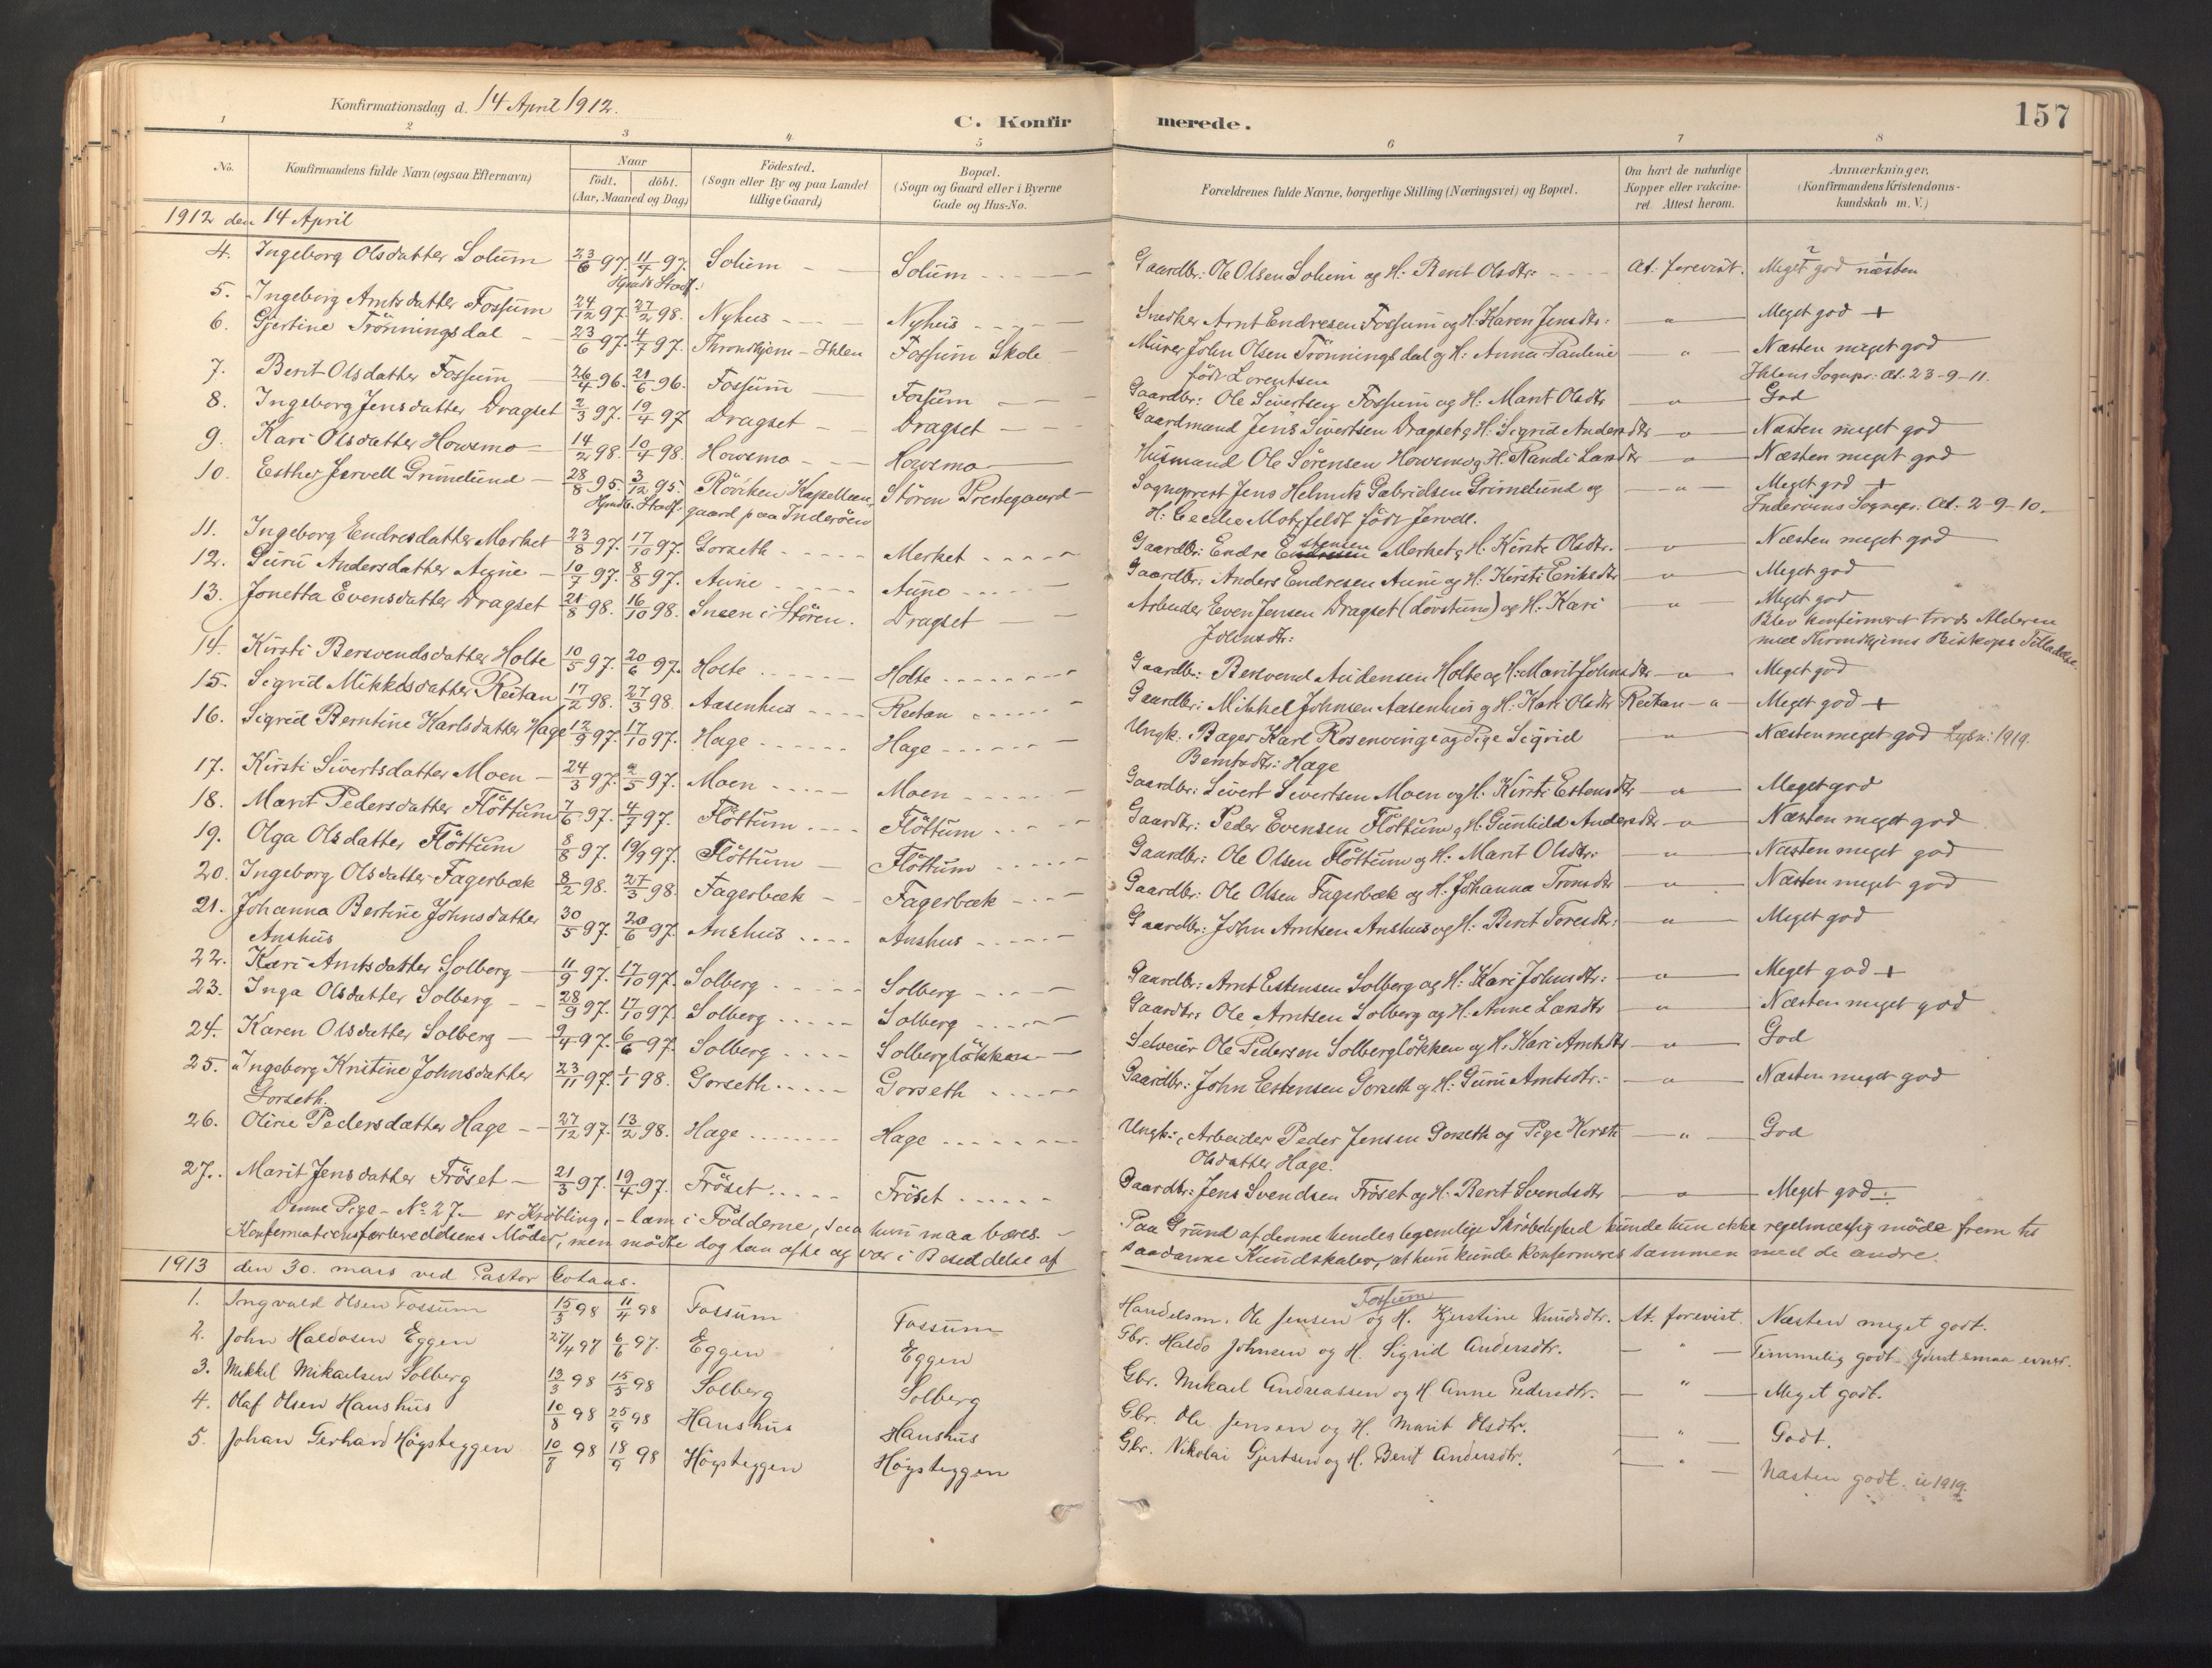 Konfirmationsdag d. 14 April 1912.
C. Konfirmerede.
157
1 2 3 4 5 6 7 8
No. Konfirmandens fulde Navn (ogsaa Efternavn) Naar födt. döbt. (Aar, Maaned og Dag) Födested. (Sogn eller By og paa Landet tillige Gaard) Bopæl. (Sogn og Gaard eller i Byerne Gade og Hus-No. Forældrenes fulde Navne, borgerlige Stilling (Næringsvei) og Bopæl. Om havt de naturlige Kopper eller vakcineret. Attest herom. Anmærkninger. (Konfirmandens Kristendomskundskab m. V.)
1912 den 14 April
4. Ingeborg Olsdatter Solum 23/6 97. 11/7 97. Solum Solum Gaardbr: Ole Olsen Solum og H: Berit Olsdtr: At: forevist. Meget god næsten
Hjemdt. Stadf.
5. Ingeborg Arntsdatter Fossum 24/12 97 27/2 98. Nyhus Nyhus Snedker Arnt Endresen Fossum og H: Karen Jensdtr: " Meget god +
6. Gjertine Trönningsdal 23/6 97. 4/7 97. Throndhjem - Ihlen Fossum Skole Murer John Olsen Trönningsdal og H: Anna Pauline " Næsten meget god
född Lorentsen Ihlens Sognepr: At. 23-9-11.
7. Berit Olsdatter Fossum 26/4 96. 21/6 96. Fossum Fossum Gaardbr: Ole Sivertsen Fossum og H: Marit Olsdtr " God
8. Ingeborg Jensdatter Dragset 2/3 97. 19/4 97 Dragset Dragset Gaardmand Jens Sivertsen Dragset og H: Sigrid Andersdtr " Næsten meget god
9. Kari Olsdatter Howsmo 14/2 98. 10/4 98. Howsmo Howsmo Husmand Ole Sörensen Howsmo og H: Randi Larsdtr " Næsten meget god
10. Esther Jervell Grimelund 28/8 95. 3/12 95. Röviken Kapellangaard paa Inderöen Stören Prestegaard Sogneprest Jens Helmik Gabrielsen Grimelund og " Meget god +
Hjemdt. Stadf. H: Cecilie Motzfeldt född Jervell. Inderöens Sognepr. At: 2-9-10.
11. Ingeborg Endresdatter Merket 23/8 97. 17/10 97. Gorseth Merket Gaardbr: Endre Estensen Merket og H. Kirsti Olsdtr. " Næsten meget god
12. Guru Andersdatter Aune 10/7 97. 8/8 97. Aune Aune Gaardbr: Anders Endresen Aune og H: Kirsti Eriksdtr " Meget god
13. Jonetta Evensdatter Dragset 21/8 98. 16/10 98. Sneen i Stören. Dragset Arbeider Even Jensen Dragset (Lövstuen) og H: Kari " Meget god
Johnsdtr: Blev konfirmeret trods Alderen
med Throndhjems Biskops Tilladelse.
14. Kirsti Bersvendsdatter Holte 10/5 97. 20/6 97. Holte Holte Gaardbr: Bersvend Audensen Holte og H: Marit Johnsdtr " Meget god
15. Sigrid Mikkelsdatter Reitan 17/2 98. 27/3 98. Aasenhus Reitan Gaardbr: Mikkel Johnsen Aasenhus og H: Kari Olsdtr Reitan " Meget god +
16. Sigrid Berntine Karlsdatter Hage 12/9 97. 17/10 97. Hage Hage Ungk: Bager Karl Rosenvinge og Pige Sigrid " Næsten meget god 1919.
Berntsdtr: Hage
17. Kirsti Sivertsdatter Moen 24/3 97. 2/5 97. Moen Moen Gaardbr: Sivert Sivertsen Moen og H: Kirsti Estensdtr " Meget god
18. Marit Pedersdatter Flöttum 7/6 97. 4/7 97. Flöttum Flöttum Gaardbr: Peder Evensen Flöttum og H: Gunhild Andersdtr " Næsten meget god
19. Olga Olsdatter Flöttum 8/8 97. 19/9 97. Flöttum Flöttum Gaardbr: Ole Olsen Flöttum og H: Marit Olsdtr: " Næsten meget god
20. Ingeborg Olsdatter Fagerbæk 8/2 98. 27/3 98 Fagerbæk Fagerbæk Gaardbr: Ole Olsen Fagerbæk og H: Johanna Tronsdtr " Næsten meget god
21. Johanna Bertine Johnsdatter 30/5 97. 20/6 97. Anshus Anshus Gaardbr: John Arntsen Anshus og H: Berit Toresdtr: " Meget god
Anshus
22. Kari Arntsdatter Solberg 11/9 97. 17/10 97. Solberg Solberg Gaardbr: Arnt Estensen Solberg og H: Kari Johnsdtr: " Meget god +
23. Inga Olsdatter Solberg 28/9 97. 17/10 97. Solberg Solberg Gaardbr: Ole Arntsen Solberg og H: Anne Larsdtr " Næsten meget god
24. Karen Olsdatter Solberg 9/4 97. 6/6 97. Solberg Solberglökken Selveier Ole Pedersen Solberglökken og H: Kari Arntsdtr " God
25. Ingeborg Kristine Johnsdatter 23/11 97. 1/1 98. Gorseth Gorseth Gaardbr: John Estensen Gorseth og H: Guru Arntsdtr: " Næsten meget god
Gorseth.
26. Oline Pedersdatter Hage 27/12 97. 13/2 98. Hage Hage Ungk: Arbeider Peder Jensen Gorseth og Pige Kirsti " God
Olsdatter Hage.
27. Marit Jensdatter Fröset 21/3 97. 19/4 97. Fröset Fröset Gaardbr: Jens Svendsen Fröset og H: Berit Svendsdtr " Meget god
Denne Pige - No 27 - er Kröbling, - lam i Födderne, saa hun maa bæres. - Paa Grund af denne hendes legemlige Skröbelighed kunde hun ikke regelmæssig möde frem til
Konfirmationsforberedelsens Möder, men mödte dog saa ofte og var i Besiddelse af saadanne Kundskaber, at hun kunde konfirmeres sammen med de andre.
1913 den 30. mars ved Pastor
1. Ingvald Olsen Fossum 15/3 98 11/4 98 Fossum Fossum Handelsm. Ole Jensen Fossum og H. Kjerstine Knudsdtr. At. forevist. Næsten meget godt.
2. John Haldosen Eggen 27/4 97 6/6 97. Eggen Eggen Gbr. Haldo Johnsen og H. Sigrid Andersdtr. " Temmelig godt. smaa evner.
3. Mikkel Mikaelsen Solberg 13/3 98 15/5 98 Solberg Solberg Gbr. Mikael Andreassen og H. Anne Pedersdtr. " Meget godt.
4. Olaf Olsen Hanshus 10/8 98 25/9 98 Hanshus Hanshus Gbr. Ole Jensen og H. Marit Olsdtr. " Godt.
5. Johan Gerhard Högsteggen 10/7 98 18/9 98 Högsteggen Högsteggen Gbr. Nikolai Gjertsen og H. Berit Andersdtr. " Næsten godt. 1919.